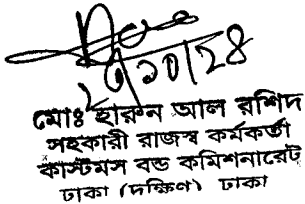 মোঃ হারুন আল রশিদ
সহকারী রাজস্ব কর্মকর্তা
কাস্টমস বন্ড কমিশনারেট
ঢাকা (দক্ষিণ) ঢাকা